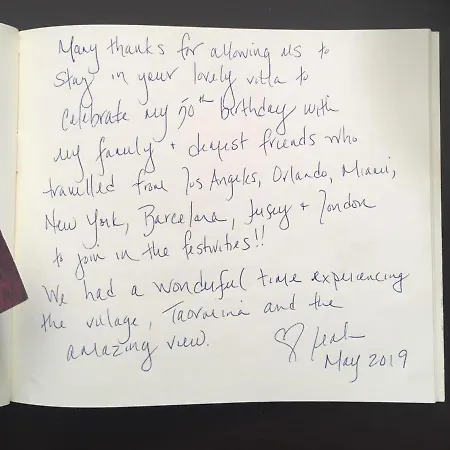 Many thanks for allowing us to
stay in your lovely villa to
celebrate my 50th birthday with
my family + dearest friends who
travelled from Los Angeles, Orlando, Miami,
New York, Barcelona, Jersey + London
to join in the festivities!!
We had a wonderful time experiencing
the village, Taormina and the
amazing view.
♡ Leah
May 2019